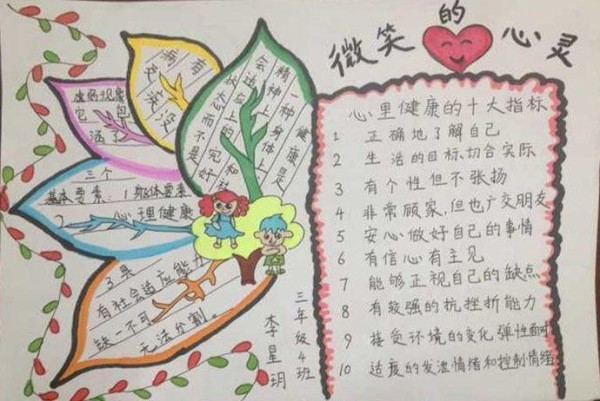 微笑的心灵
心里健康的十大指标
1 正确地了解自己
2 生活的目标切合实际
3 有个性但不张扬
4 非常顾家,但也广交朋友
5 安心做好自己的事情
6 有信心有主见
7 能够正视自己的缺点
8 有较强的抗挫折能力
9 接受环境的变化,弹性面对
10 适度的发泄情绪和控制情绪
健康是
一种身体上
精神上
会适应上的完好
状态而不是
有
病
没
包
它
涵了
三个
基本要素:1身体要素
2 心理健康
3具
有社会适应能力
缺一不可
无法分割。
三年级4班
李星玥